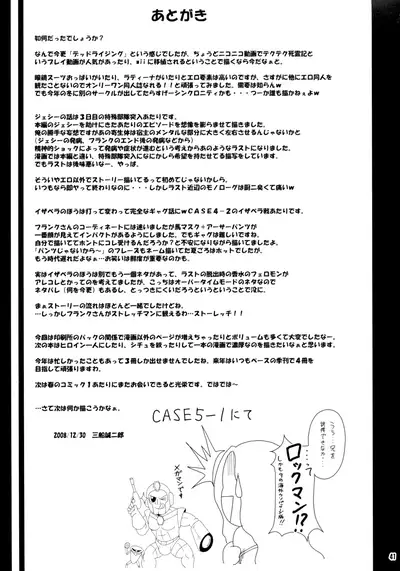 あとがき
如何だったでしょうか？
なんで今更「デッドライジング」という感じでしたが、ちょうどニコニコ動画でテクテク死霊記と
いうプレイ動画が人気があったり、wiiに移植されるということで描くなら今だなぁと。
眼鏡スーツおっぱいがいたり、ラティーナがいたりとエロ要素は高いのですが、さすがに他にエロ同人を
観たことないのでオンリーワン同人誌なれる！！と頑張ってみました。需要は知らんw
でも今年の冬に別のサークルが出してたらすげーシンクロニティかも・・・つーか誰も描かねぇよw
ジェシーの話は3日目の特殊部隊突入になります。
本編のジェシーを助けにきたあたりのエピソードを想像を膨らまして描いてみました。
俺の勝手な妄想ですがあの寄生体は宿主のメンタルな部分に大きく左右させるんじゃないかと
（ジェシーの発病、フランクのエンド後の発病などから）
精神的ショックによって発病や症状が進むという考えからあのようなラストになりました。
漫画では本編と違い、特殊部隊突入になにかしら希望を持たせてる描写をしています。
でもラストは後味悪いなー。やっぱ。
そういやエロ以外でストーリー描いてるって初めてじゃないかしら。
いつもなら即ヤって終わりなのに・・・しかしラスト近辺のモノローグは厨二臭くて痛いw
イザベラのほうは打って変わって完全なギャグ話にwCASE4-2のイザベラ戦あたりです。
フランクさんのコーディネートには迷いましたが馬マスク+アーサーパンツが
一番絵的に見てインパクトがあるようにしました。でもギャグは難しいですね。
自分で描いててホントにコレ受けるんだろうか？と不安になりもながら描いてましたよ。
「パンツじゃないから〜」のフレーズもネーム描いてた夏ごろはホットでしたが、
もう時代遅れだよなぁ…お笑いは鮮度が重要なのかも。
実はイザベラのほうは別でもう一個ネタがあって、ラストの脱出時の香水のフェロモンが
アレコレとかってのを考えてましたが、こっちはオーバータイムモードのネタなので
ネタバレ（何を今更）もあるし、とっつきにくいだろうというということで没に。
まぁストーリーの流れはほとんど一緒でしたけどね。
…しっかしフランクさんがストレッチマンに観えるわ…ストーレッチ！！
今回は印刷所のパックの関係で漫画以外のページが増えちゃったりとボリュームも多くて大変でしたなー。
次の本はヒロイン一人にしたり、シチュを絞ったりして一本の漫画で濃厚なのを描きたいなぁと思います。
今年は忙しかったこともあって3冊しか出せませんでしたね。来年はいつもペースの季刊で4冊を
目指して頑張りますわ。
次は春のコミック1あたりにまたお会いできると光栄です、ではでは〜
…さて次は何か描こうかなぁ。
2008/12/30 三船誠二郎
CASE5-1にて
ロックマン!?
メガマンです
41